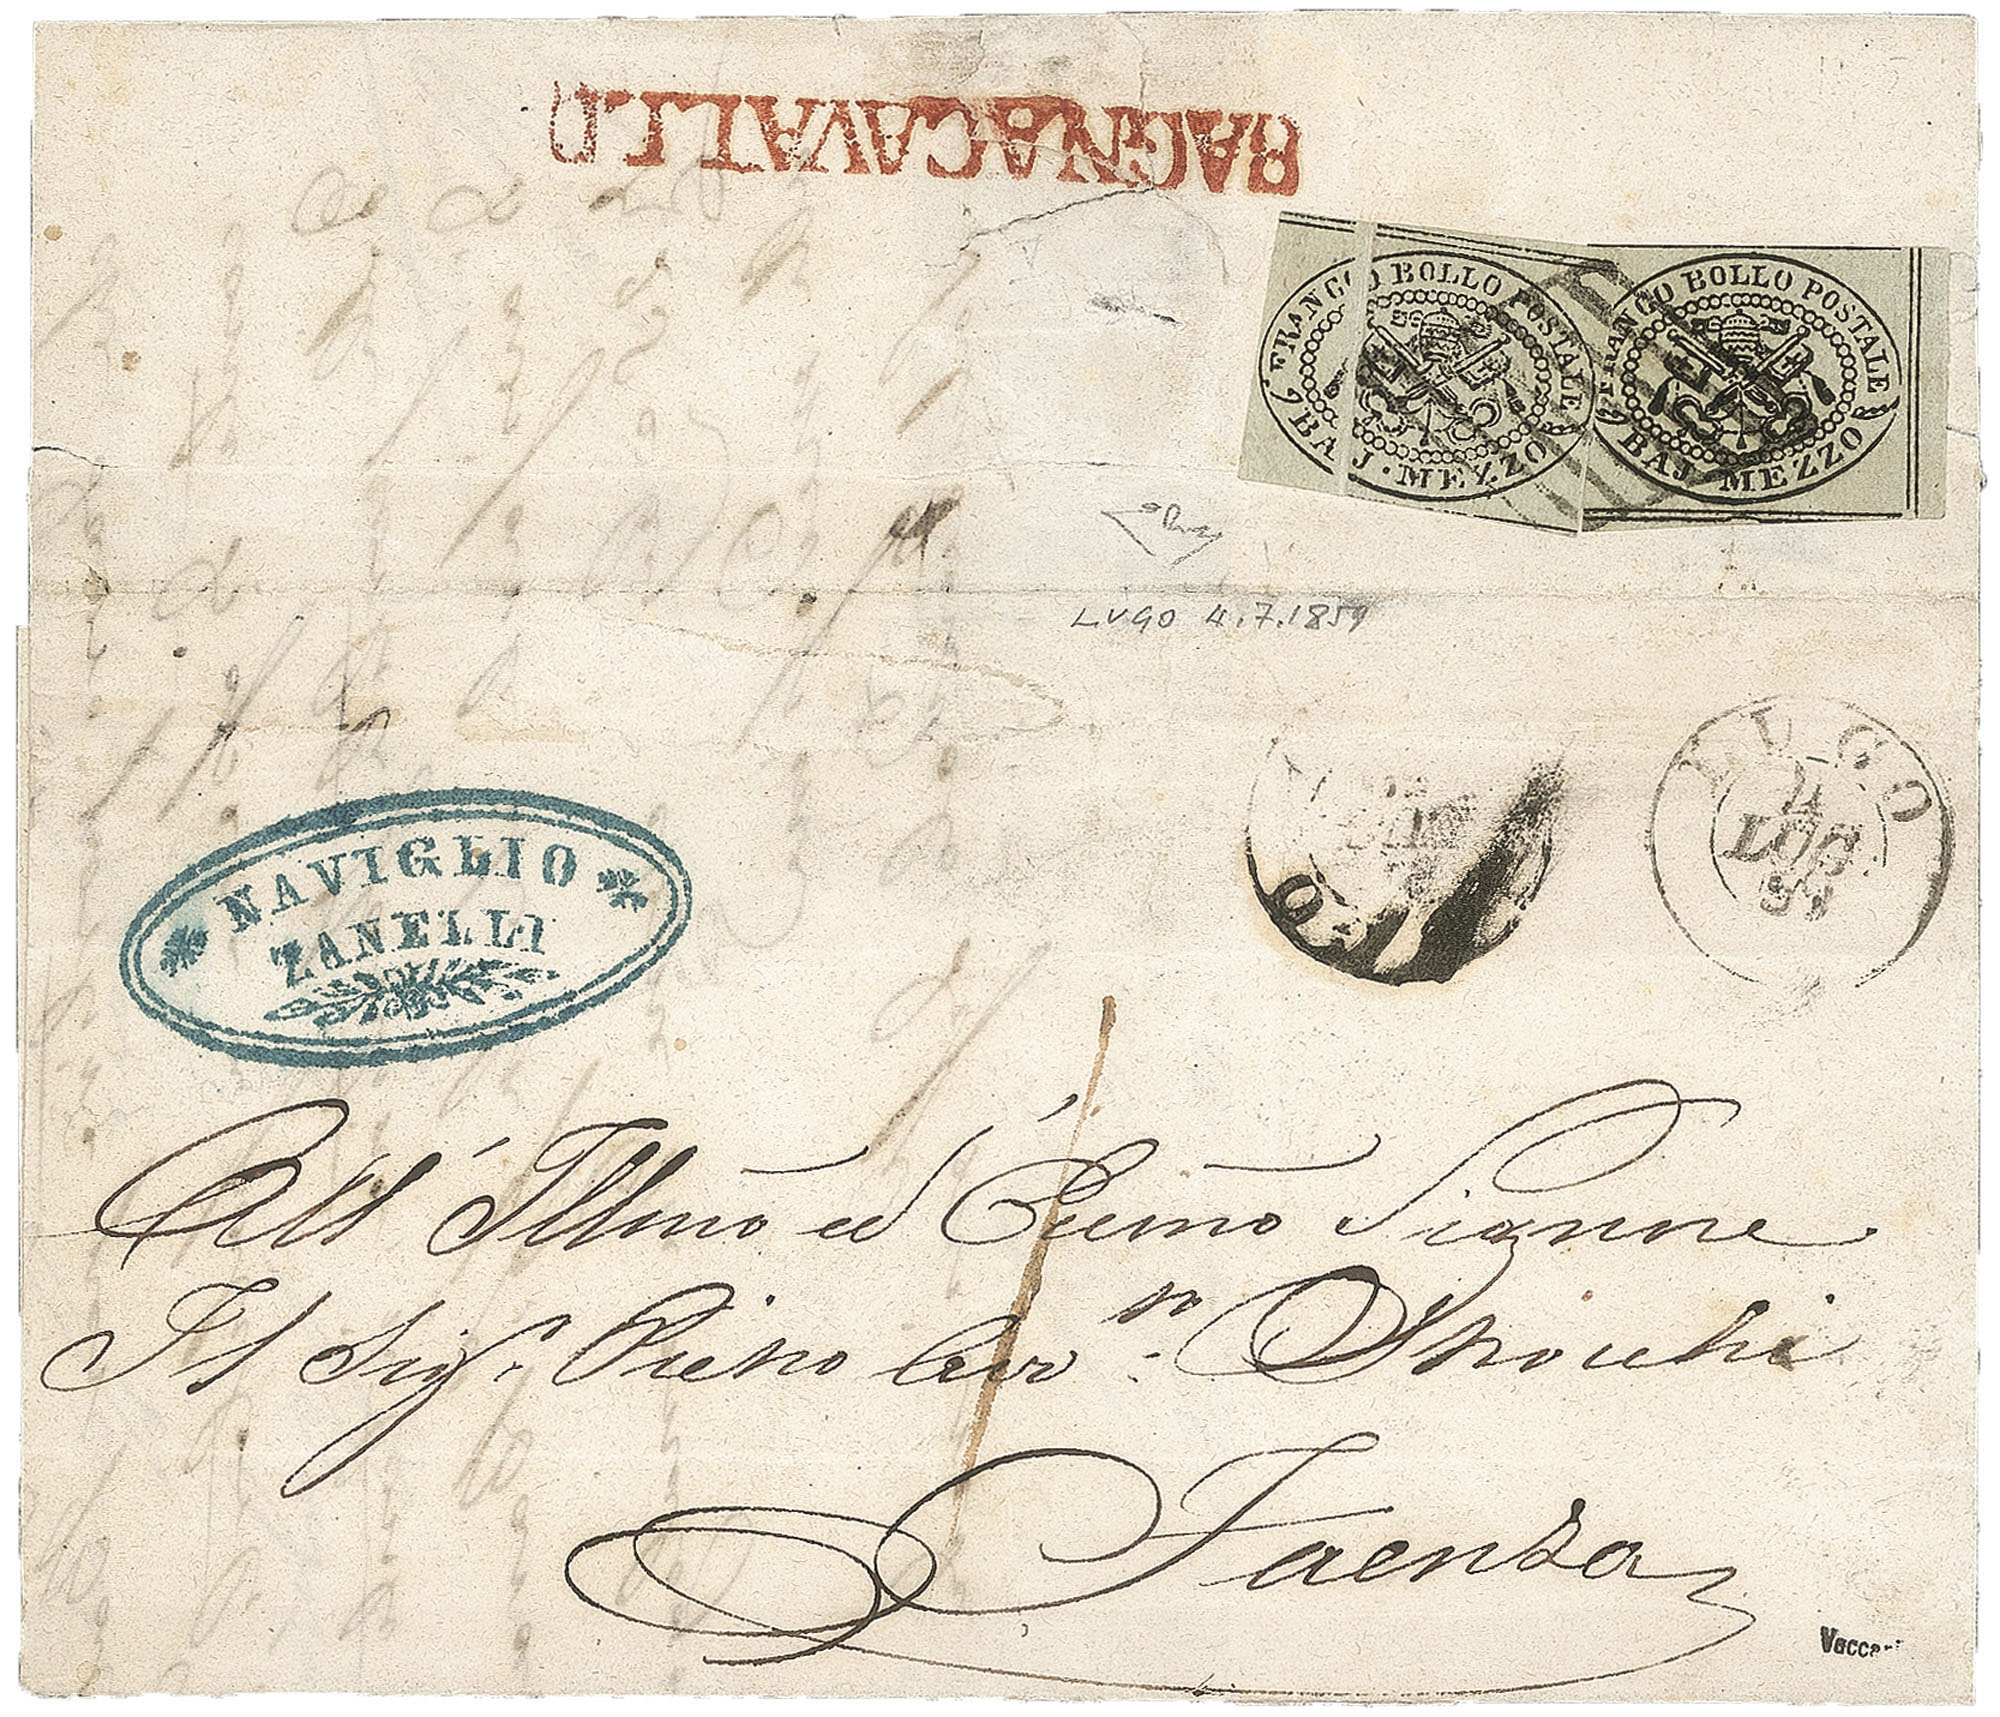 BAGNACAVALLO
FRANCO BOLLO POSTALE
BAJ. MEZZO
FRANCO BOLLO POSTALE
BAJ MEZZO
LUGO 4.7.1859
LUGO
4
LUG
59
NAVIGLIO
ZANELLI
All' Illmo ed Eccmo Signore
Il Sigr. Pietro Cav.
Faenza
Vaccari